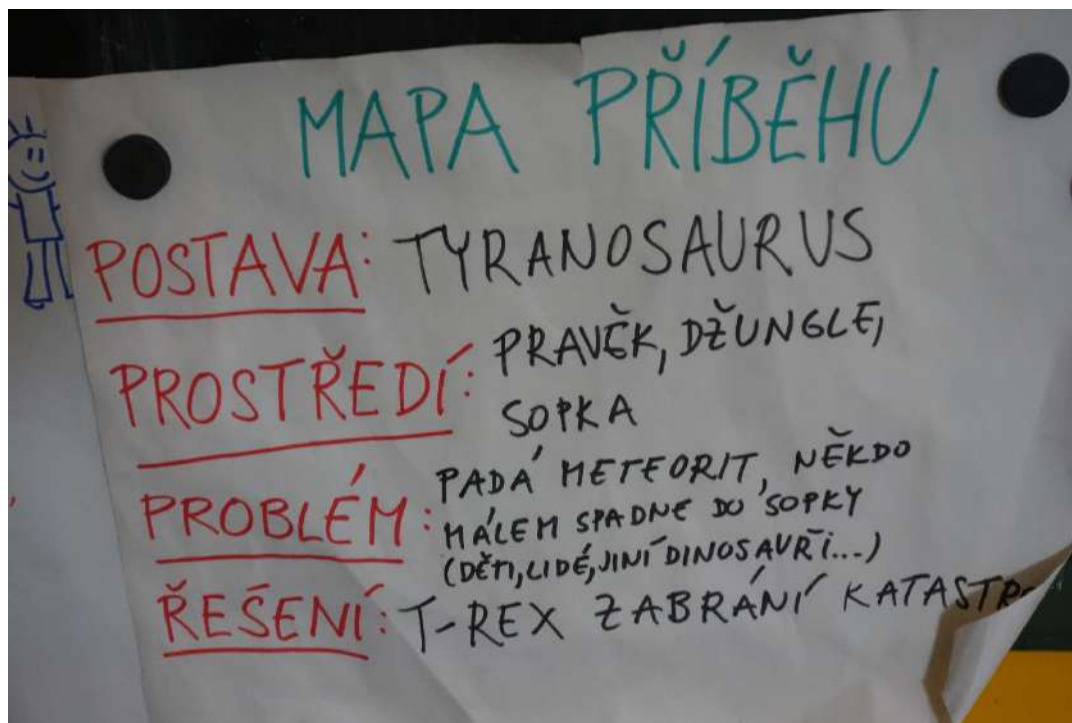 MAPA PŘÍBĚHU
POSTAVA: TYRANOSAURUS
PROSTŘEDÍ: PRAVĚK, DŽUNGLE,
SOPKA
PROBLÉM: PADÁ METEORIT, NĚKDO
MÁLEM SPADNE DO SOPKY
(DĚTI, LIDÉ, JINÍ DINOSAUŘI...)
ŘEŠENÍ: T-REX ZABRÁNÍ KATASTR